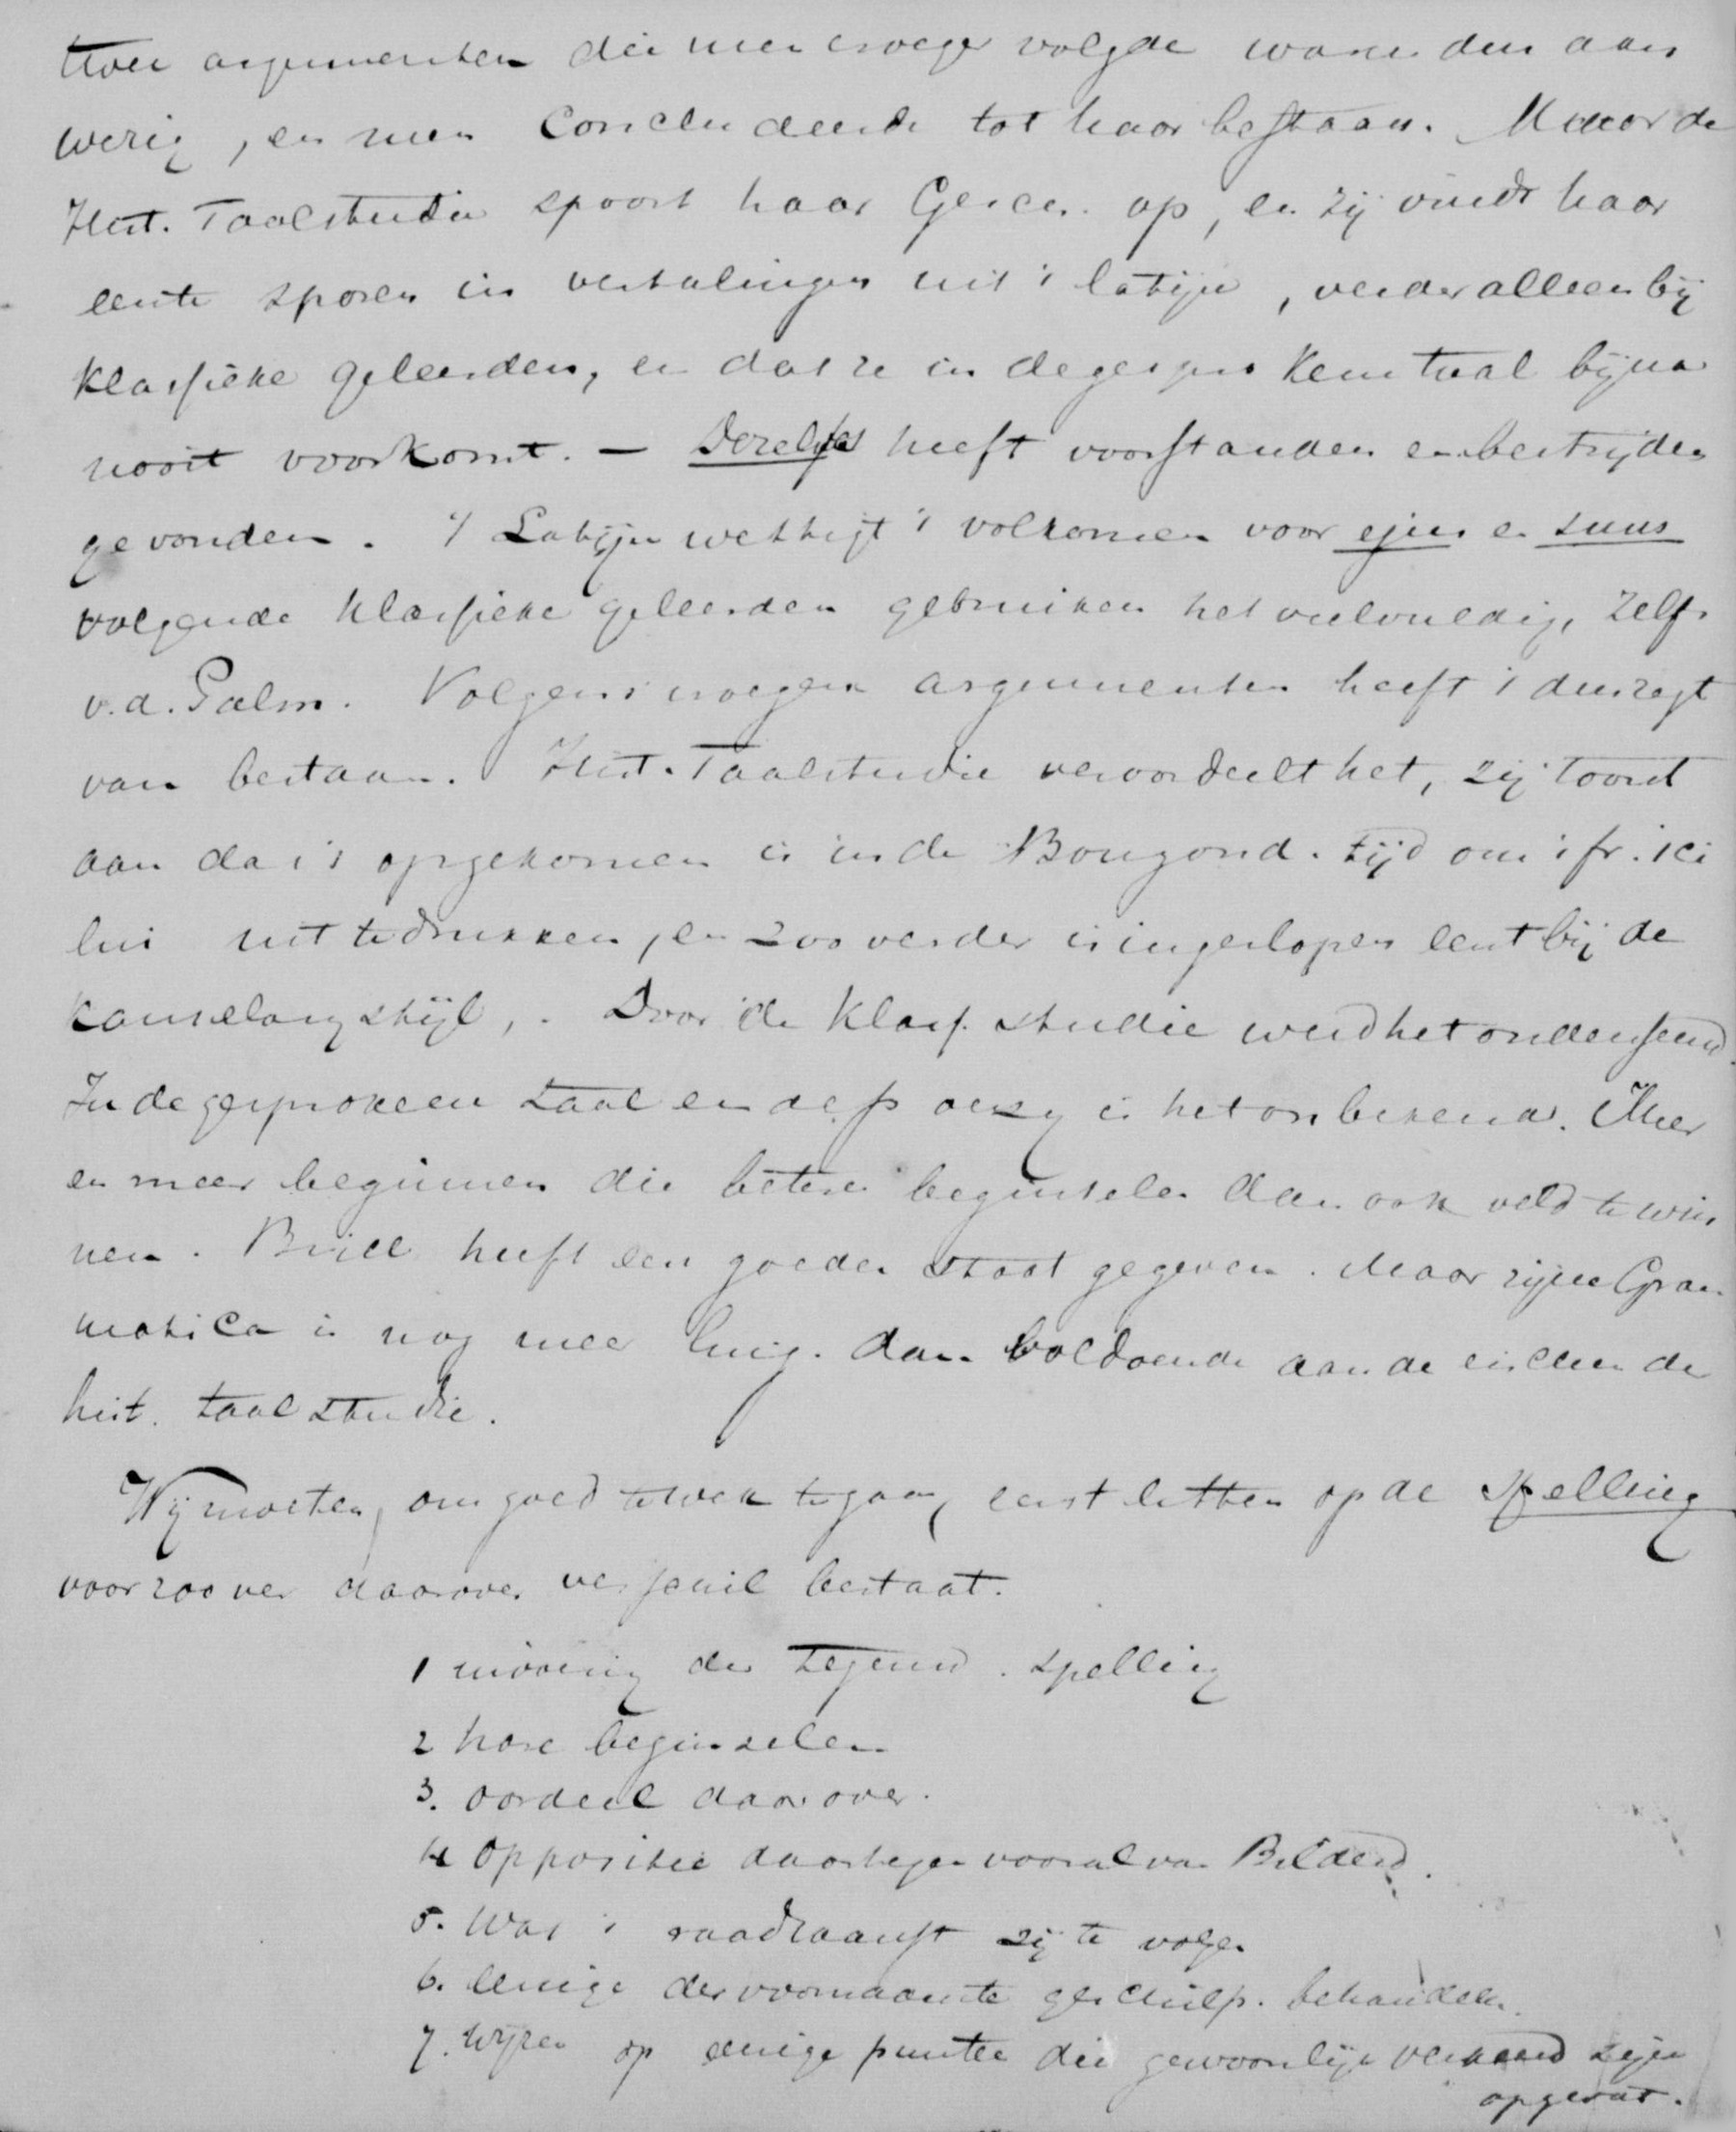 twee argumenten die men vroeger volgde waren dus aan
wezig, en men concludeerde tot haar bestaan. Maar de
Hist. Taalstudie spoort haar Gesch. op, en zij vindt haar
eerste sporen in vertalingen uit 't latijn, verder alleen bij
klassieke geleerden, en dat ze in de gesproken taal bijna
nooit voorkomt. — Deszelfs heeft voorstanders en bestrijders
gevonden. 't Latijn wettigt 't volkomen voor ejus en suus
volgende klassieke geleerden gebruiken het veelvuldig, zelfs
v.d. Palm. Volgens vroegere argumenten heeft 't dus regt
van bestaan. Hist. Taalstudie veroordeelt het, zij toont
aan dat 't opgekomen is in de Bourgond. tijd om 't fr. ici
lui uit te drukken, en zoo verder is ingeslopen eerst bij de
kanselarijstijl,. Door de klass. studie werd het ondersteund.
In de gesproken taal en de poezy is het onbekend. Meer
en meer beginnen die betere beginselen dan ook veld te win
nen. Brill heeft een goeden stoot gegeven. Maar zijne Gram
matica is nog meer dan voldoende aan de eischen der
hist. taalstudie.
Wij moeten, om goed te werk te gaan, eerst letten op de spelling
voor zoo ver daarover verschil bestaat.
1 invoering der tegenw. spelling
2 hare beginselen
3. oordeel daarover.
4 oppositie daartegen vooral van Bilderd.
5. Wat 't raadzaamst zij te volgen
6. Eenige der voornaamste geschilp. behandelen.
7. Wijzen op eenige punten die gewoonlijk verkeerd zijn
opgevat.